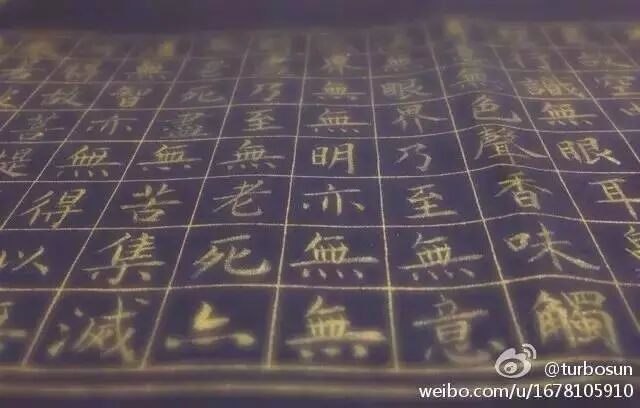 故空中
行識無眼耳
無色聲香味觸
眼界乃至無意
界無無明亦無無
盡乃至無老死亦
老死盡無苦集滅
無智亦無得以無
得故菩提
@turbosun
weibo.com/u/1678105910